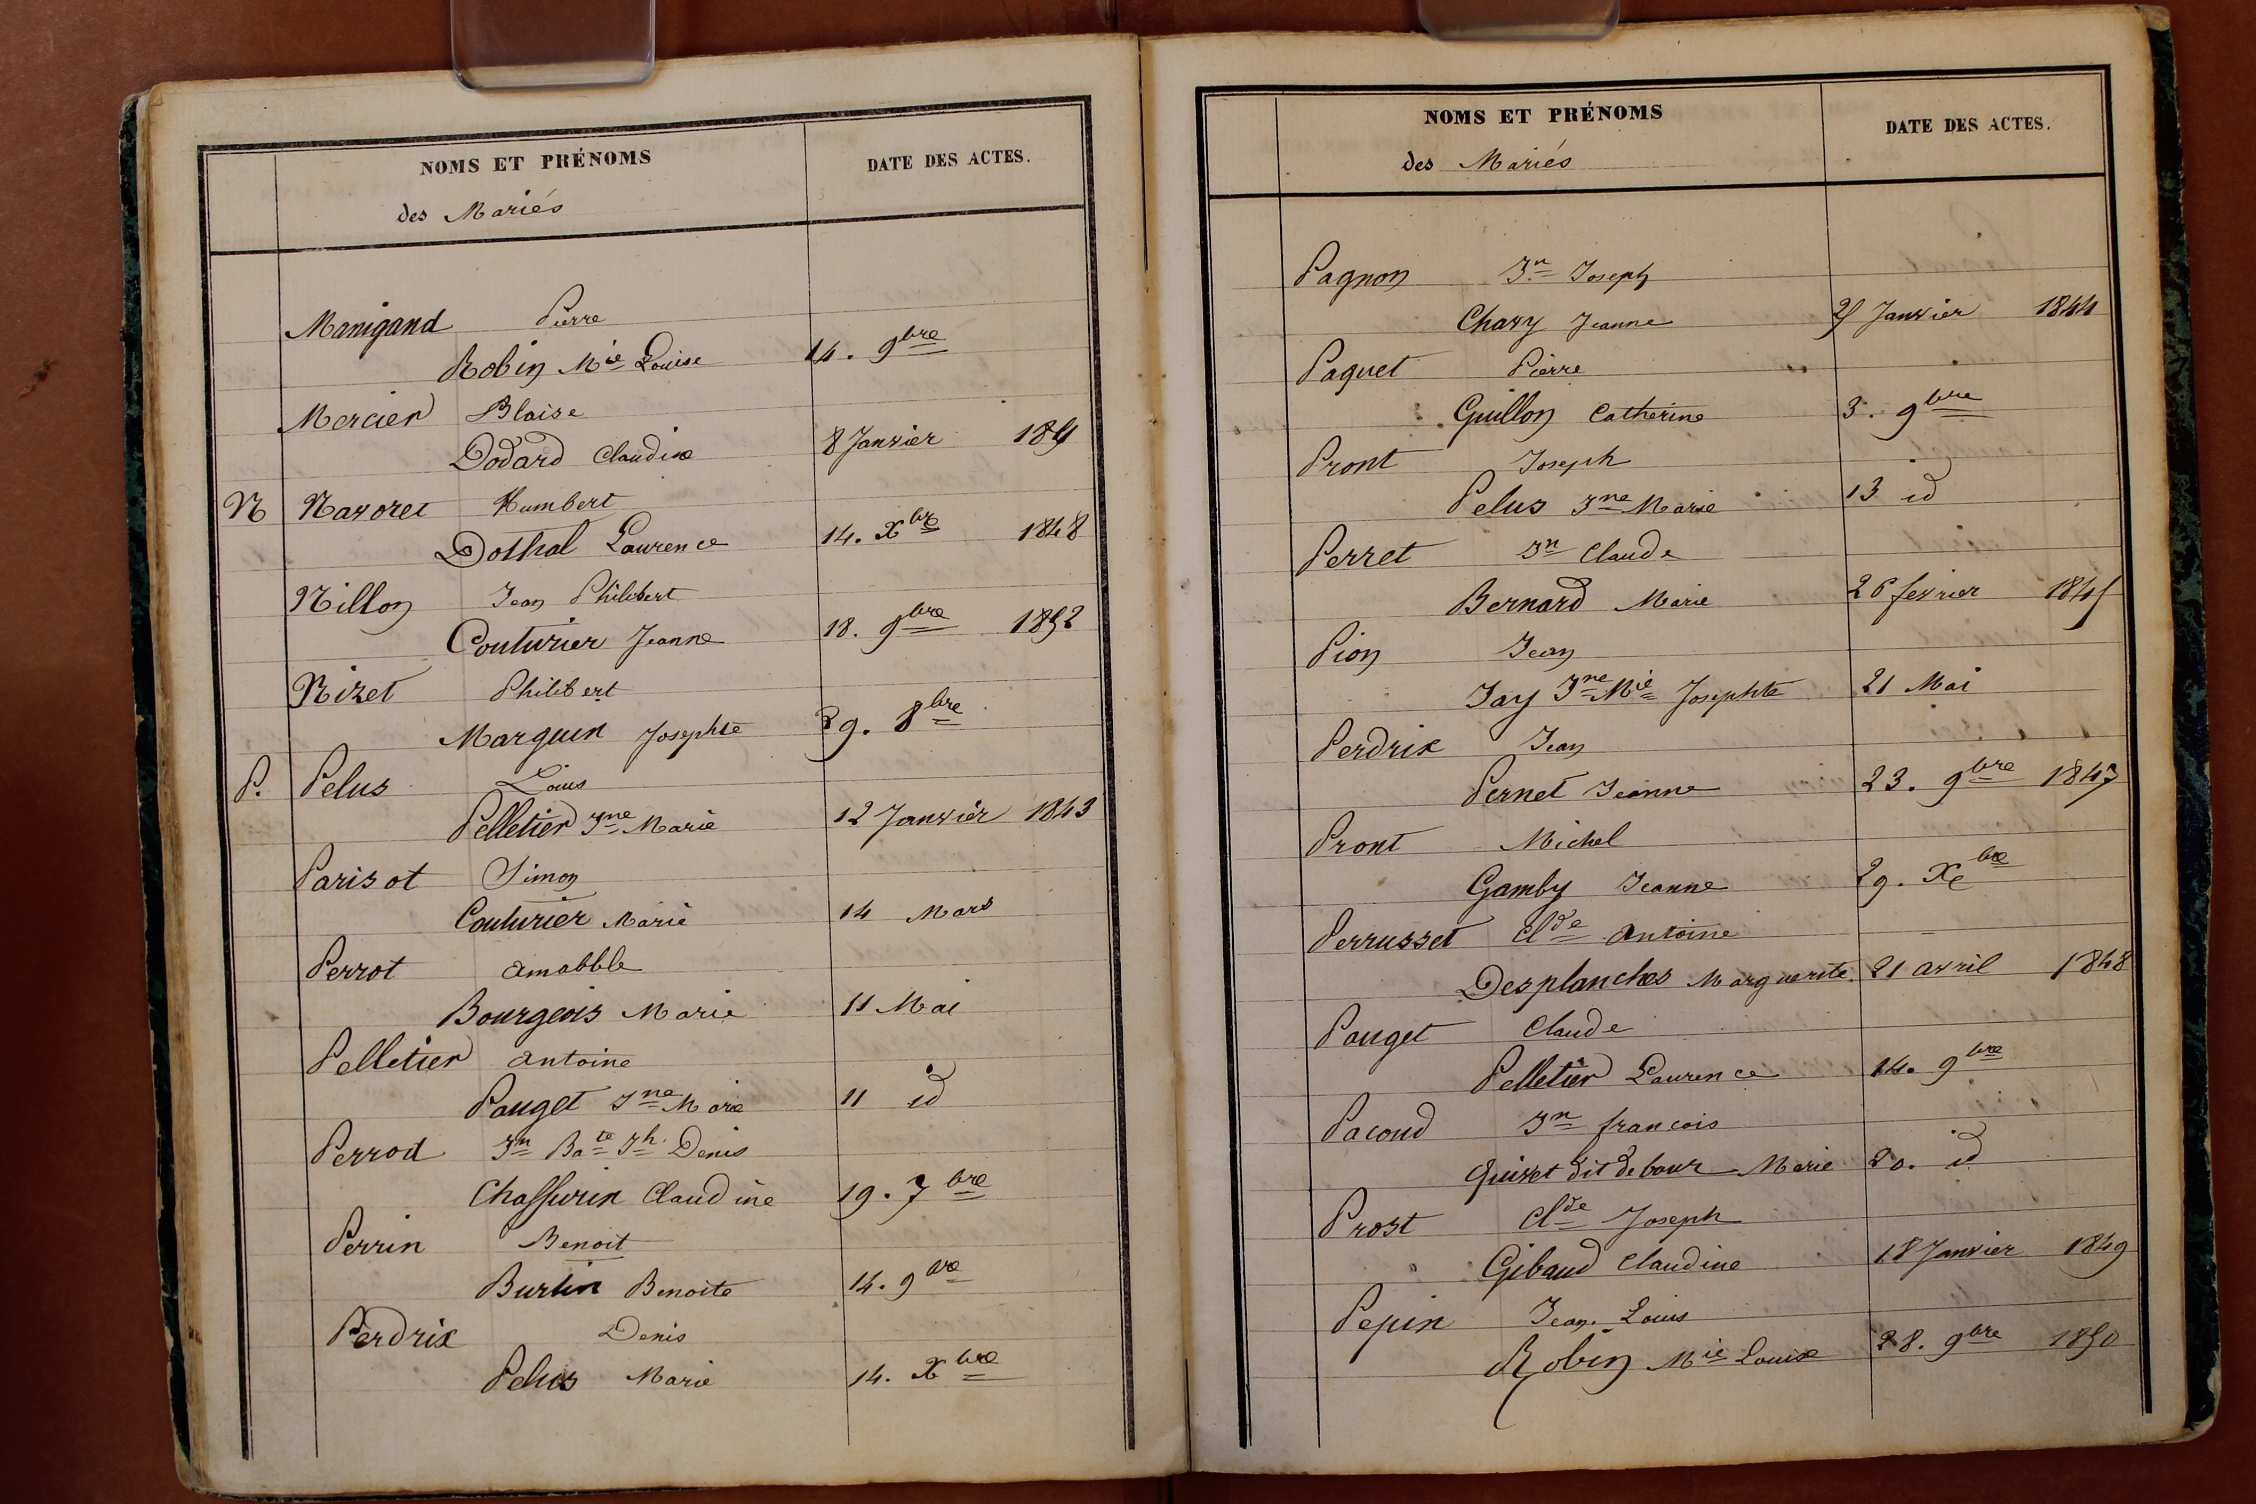 NOMS ET PRÉNOMS
des Mariés
DATE DES ACTES.
Manigand Pierre
Robin Mie Louise 14. 9bre
Mercier Blaise
Dodard Claudine 8 Janvier
N Navoret Humbert
Dothal Laurence 14. Xbre 1848
Nillon Jean Philibert
Couturier Jeanne 18. 9bre 1852
Nizet Philibert
Marguin Josephte 29. 8bre
P. Pelus Louis
Pelletier Jne Marie 12 Janvier 1843
Parisot Simon
Couturier Marie 14 Mars
Perrot amabble
Bourgeois Marie 11 Mai
Pelletier antoine
Pauget Jne Marie 11 id
Perrod Jn Bate Jh Denis
Chassurin Claudine 19. 7bre
Perrin Benoit
Burtin Benoite 14. 9bre
Perdrix Denis
Pelus Marie 14. Xbre
NOMS ET PRÉNOMS
des Mariés
DATE DES ACTES.
Pagnon Jn Joseph
Chavy Jeanne Janvier 1844
Paquet Pierre
Guillon Catherine 3. 9bre
Pront Joseph
Pelus Jne Marie 13 id
Perret Jn Claude
Bernard Marie 26 fevrier 1845
Pion Jean
Jay Jne Mie Josephte 21 Mai
Perdrix Jean
Pernet Jeanne 23. 9bre 1847
Pront Michel
Gamby Jeanne 29. Xbre
Perrusset Clde antoine
Desplanches Marguerite. 21 avril 1848
Pauget Claude
Pelletier Laurence 14. 9bre
Pacoud Jn francois
Guizet dit debour Marie 20. id
Prost Clde Joseph
Gibaud Claudine 18 Janvier 1849
Pepin Jean. Louis
Robin Mie Louise 28. 9bre 1850